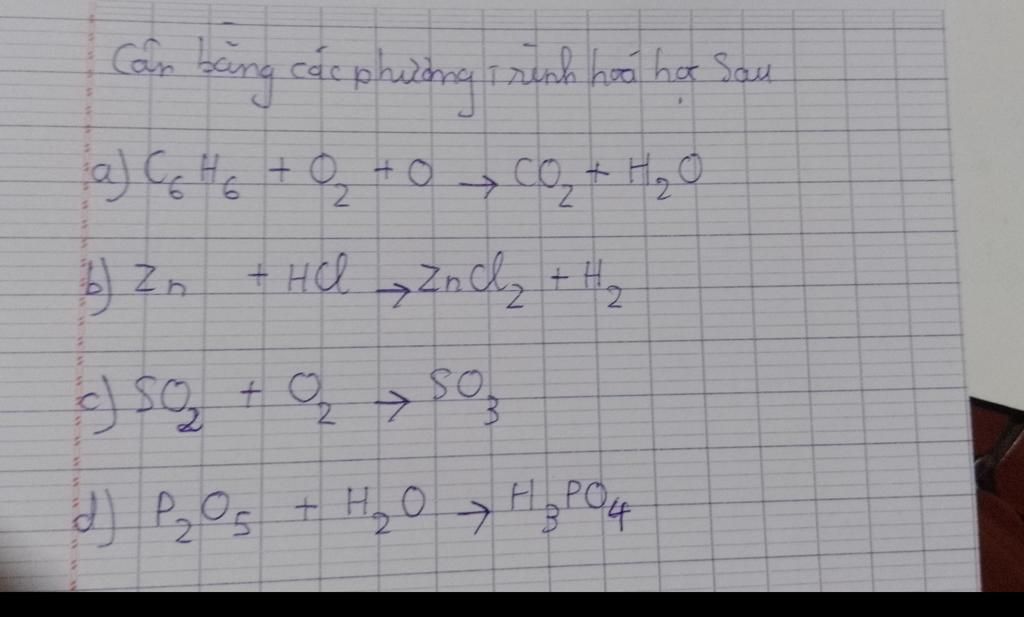 Cân bằng các phương trình hoá học sau
a) C₆H₆ + O₂ + O → CO₂ + H₂O
b) Zn + HCl → ZnCl₂ + H₂
c) SO₂ + O₂ → SO₃
d) P₂O₅ + H₂O → H₃PO₄